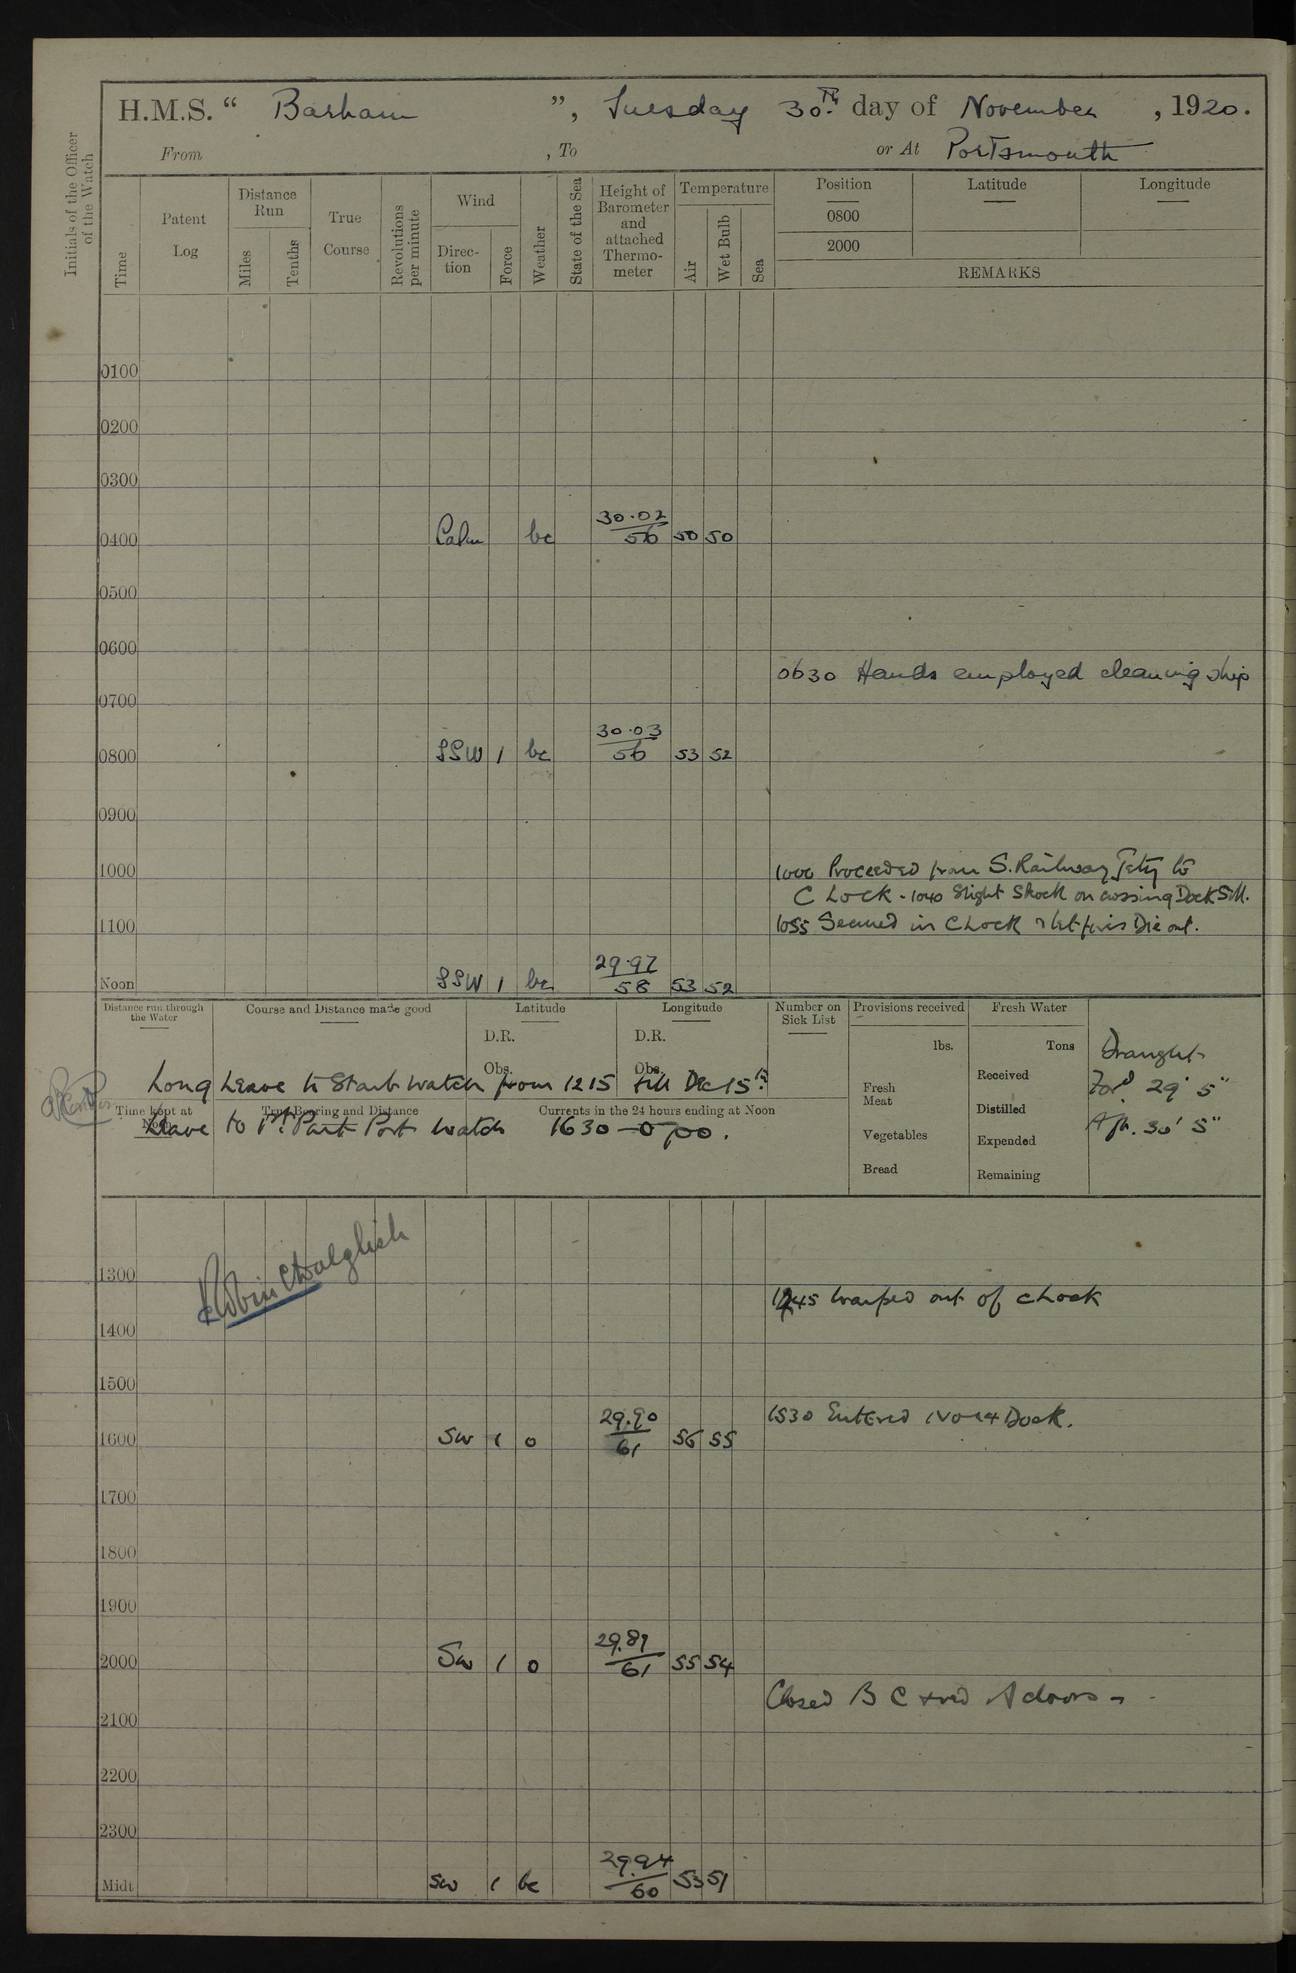 H.M.S. “ Barham ”, Tuesday 30TH. day of November , 1920.
From , To or At Portsmouth
Initials of the Officer of the Watch
Time
Patent Log
Distance Run
Miles
Tenths
True Course
Revolutions per minute
Wind
Direc-tion
Force
Weather
State of the Sea
Height of Barometer and attached Thermo-meter
Temperature
Air
Wet Bulb
Sea
Position Latitude Longitude
0800
2000
REMARKS
0100
0200
0300
0400 Calm bc 30.02 56 50 50
0500
0600
0630 Hands employed cleaning ship
0700
0800 SSW 1 bc 30.03 56 53 52
0900
1000 1000 Proceeded from S. Railway Jetty to
C Lock - 1040 Slight Shock on crossing Dock Sill.
1100 1055 Secured in C Lock & let fires Die out.
Noon SSW 1 bc 29.97 58 53 52
Distance run through the Water
Course and Distance made good
Latitude
D.R.
Obs.
Longitude
D.R.
Obs.
Number on Sick List
Provisions received
lbs.
Fresh Meat
Vegetables
Bread
Fresh Water
Tons
Received
Distilled
Expended
Remaining
Draught
For'd 29' 5"
Aft. 30' 5"
Long Leave to Starb Watch from 1215 till Dec 15th
Time kept at Noon
True Bearing and Distance
Currents in the 24 hours ending at Noon
Leave to 1st Part Port Watch 1630 - 0700.
1300
1245 Warped out of C Lock
1400
1500
1530 Entered No 14 Dock.
1600 SW 1 o 29.90 61 56 55
1700
1800
1900
2000 SW 1 o 29.89 61 55 54
Closed B C and A doors -
2100
2200
2300
Midt SW 1 bc 29.94 60 53 51